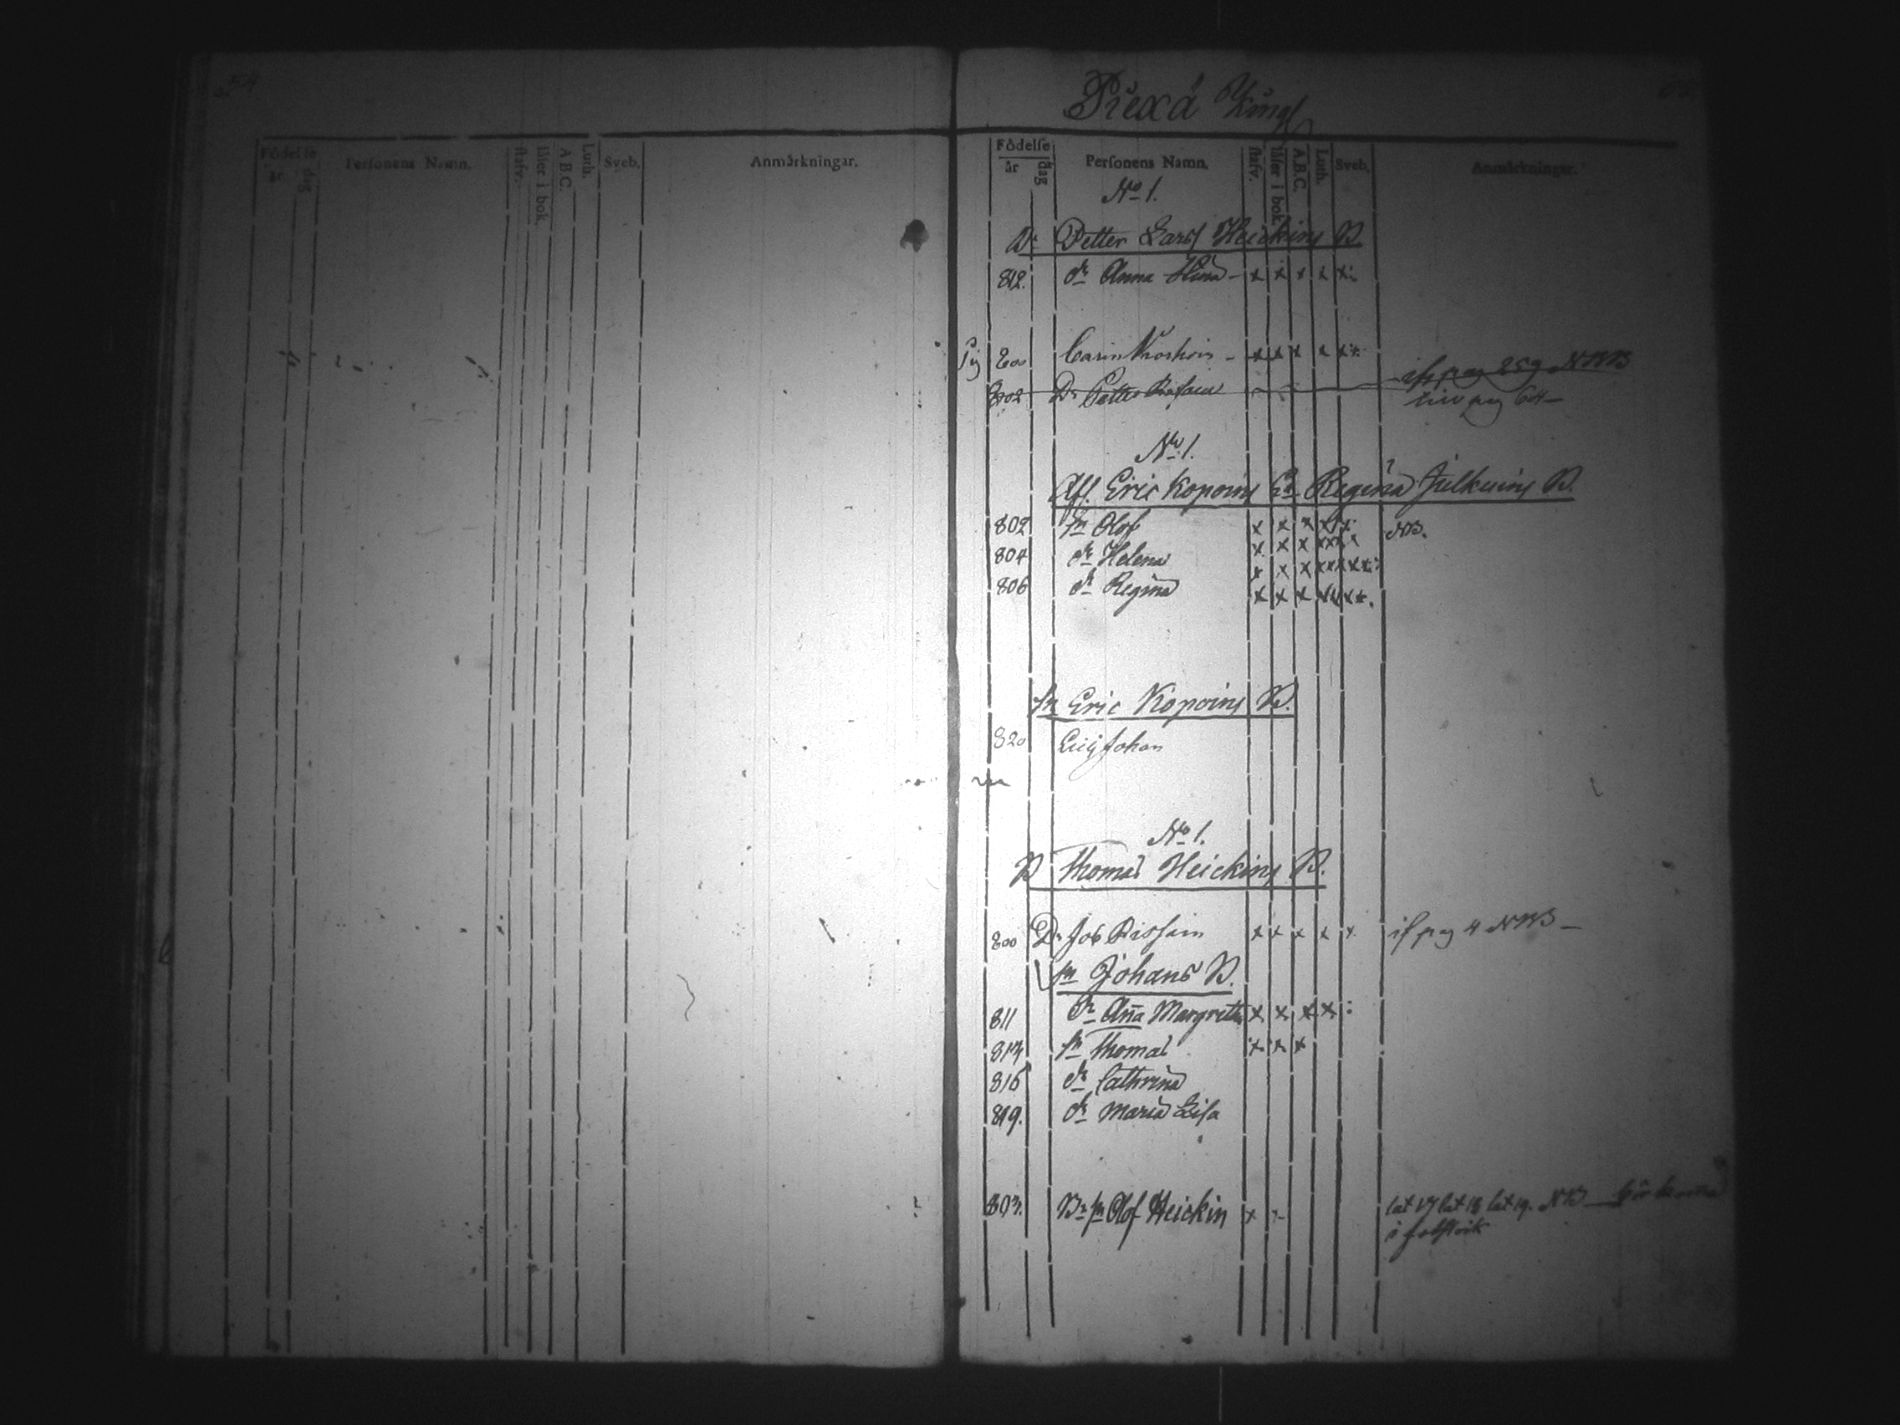 54
Födelse
år
dag
Personens Namn.
stafv.
läser i bok.
A.B.C.
Luth.
Sveb.
Anmärkningar.
Födelse
år
dag
Personens Namn.
stafv.
läser i bok.
A.B.C.
Luth.
Sveb.
Anmärkningar.
No 1.
Petter Larss Heickins B.
812. dr Anna Stina x x x x x
Pig 800 Carin x x x x x
802 Dr Petter if pag 259 NB
pag 64
No 1.
Afl. Eric Kopoins Ea Regina Julkuins B.
802 sn Olof x x x x x NB.
804 dr Helena x x x
806 dr Regina x x x
sn Eric Kopoins B.
820 Eric Johan
No 1.
B Thomas Heickins B.
800 Dr Job x x x x x if pag 4 NB
sn Johans B.
811 dr Aña Margreta x x x x
814 sn Thomas x x x
816 dr Cathrina
819. dr Maria Lisa
803. Br sn Olof Heickin x lät 17 lät 18 lät 19. NB
i